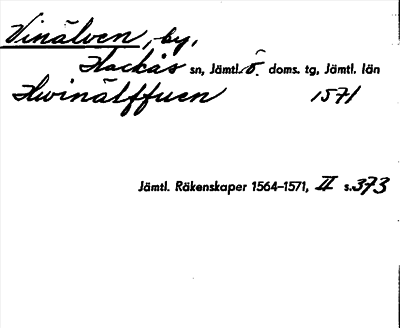 Vinälven, by,
Hackås sn, Jämtl. ö. doms. tg, Jämtl. län
Hwinälffuen 1571
Jämtl. Räkenskaper 1564-1571, II s. 373